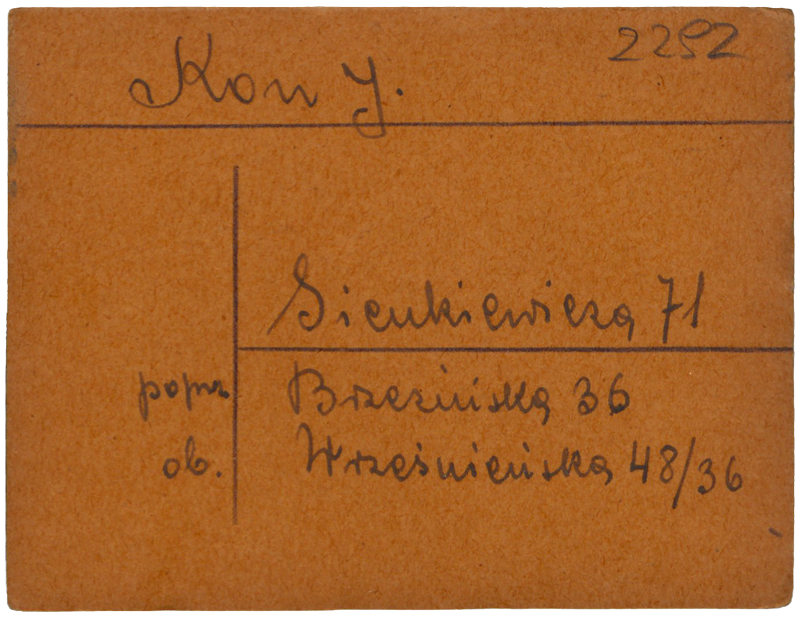 2292
Kon J.
Sienkiewicza 71
popr. Brzezińska 36
ob. Wrześnieńska 48/36